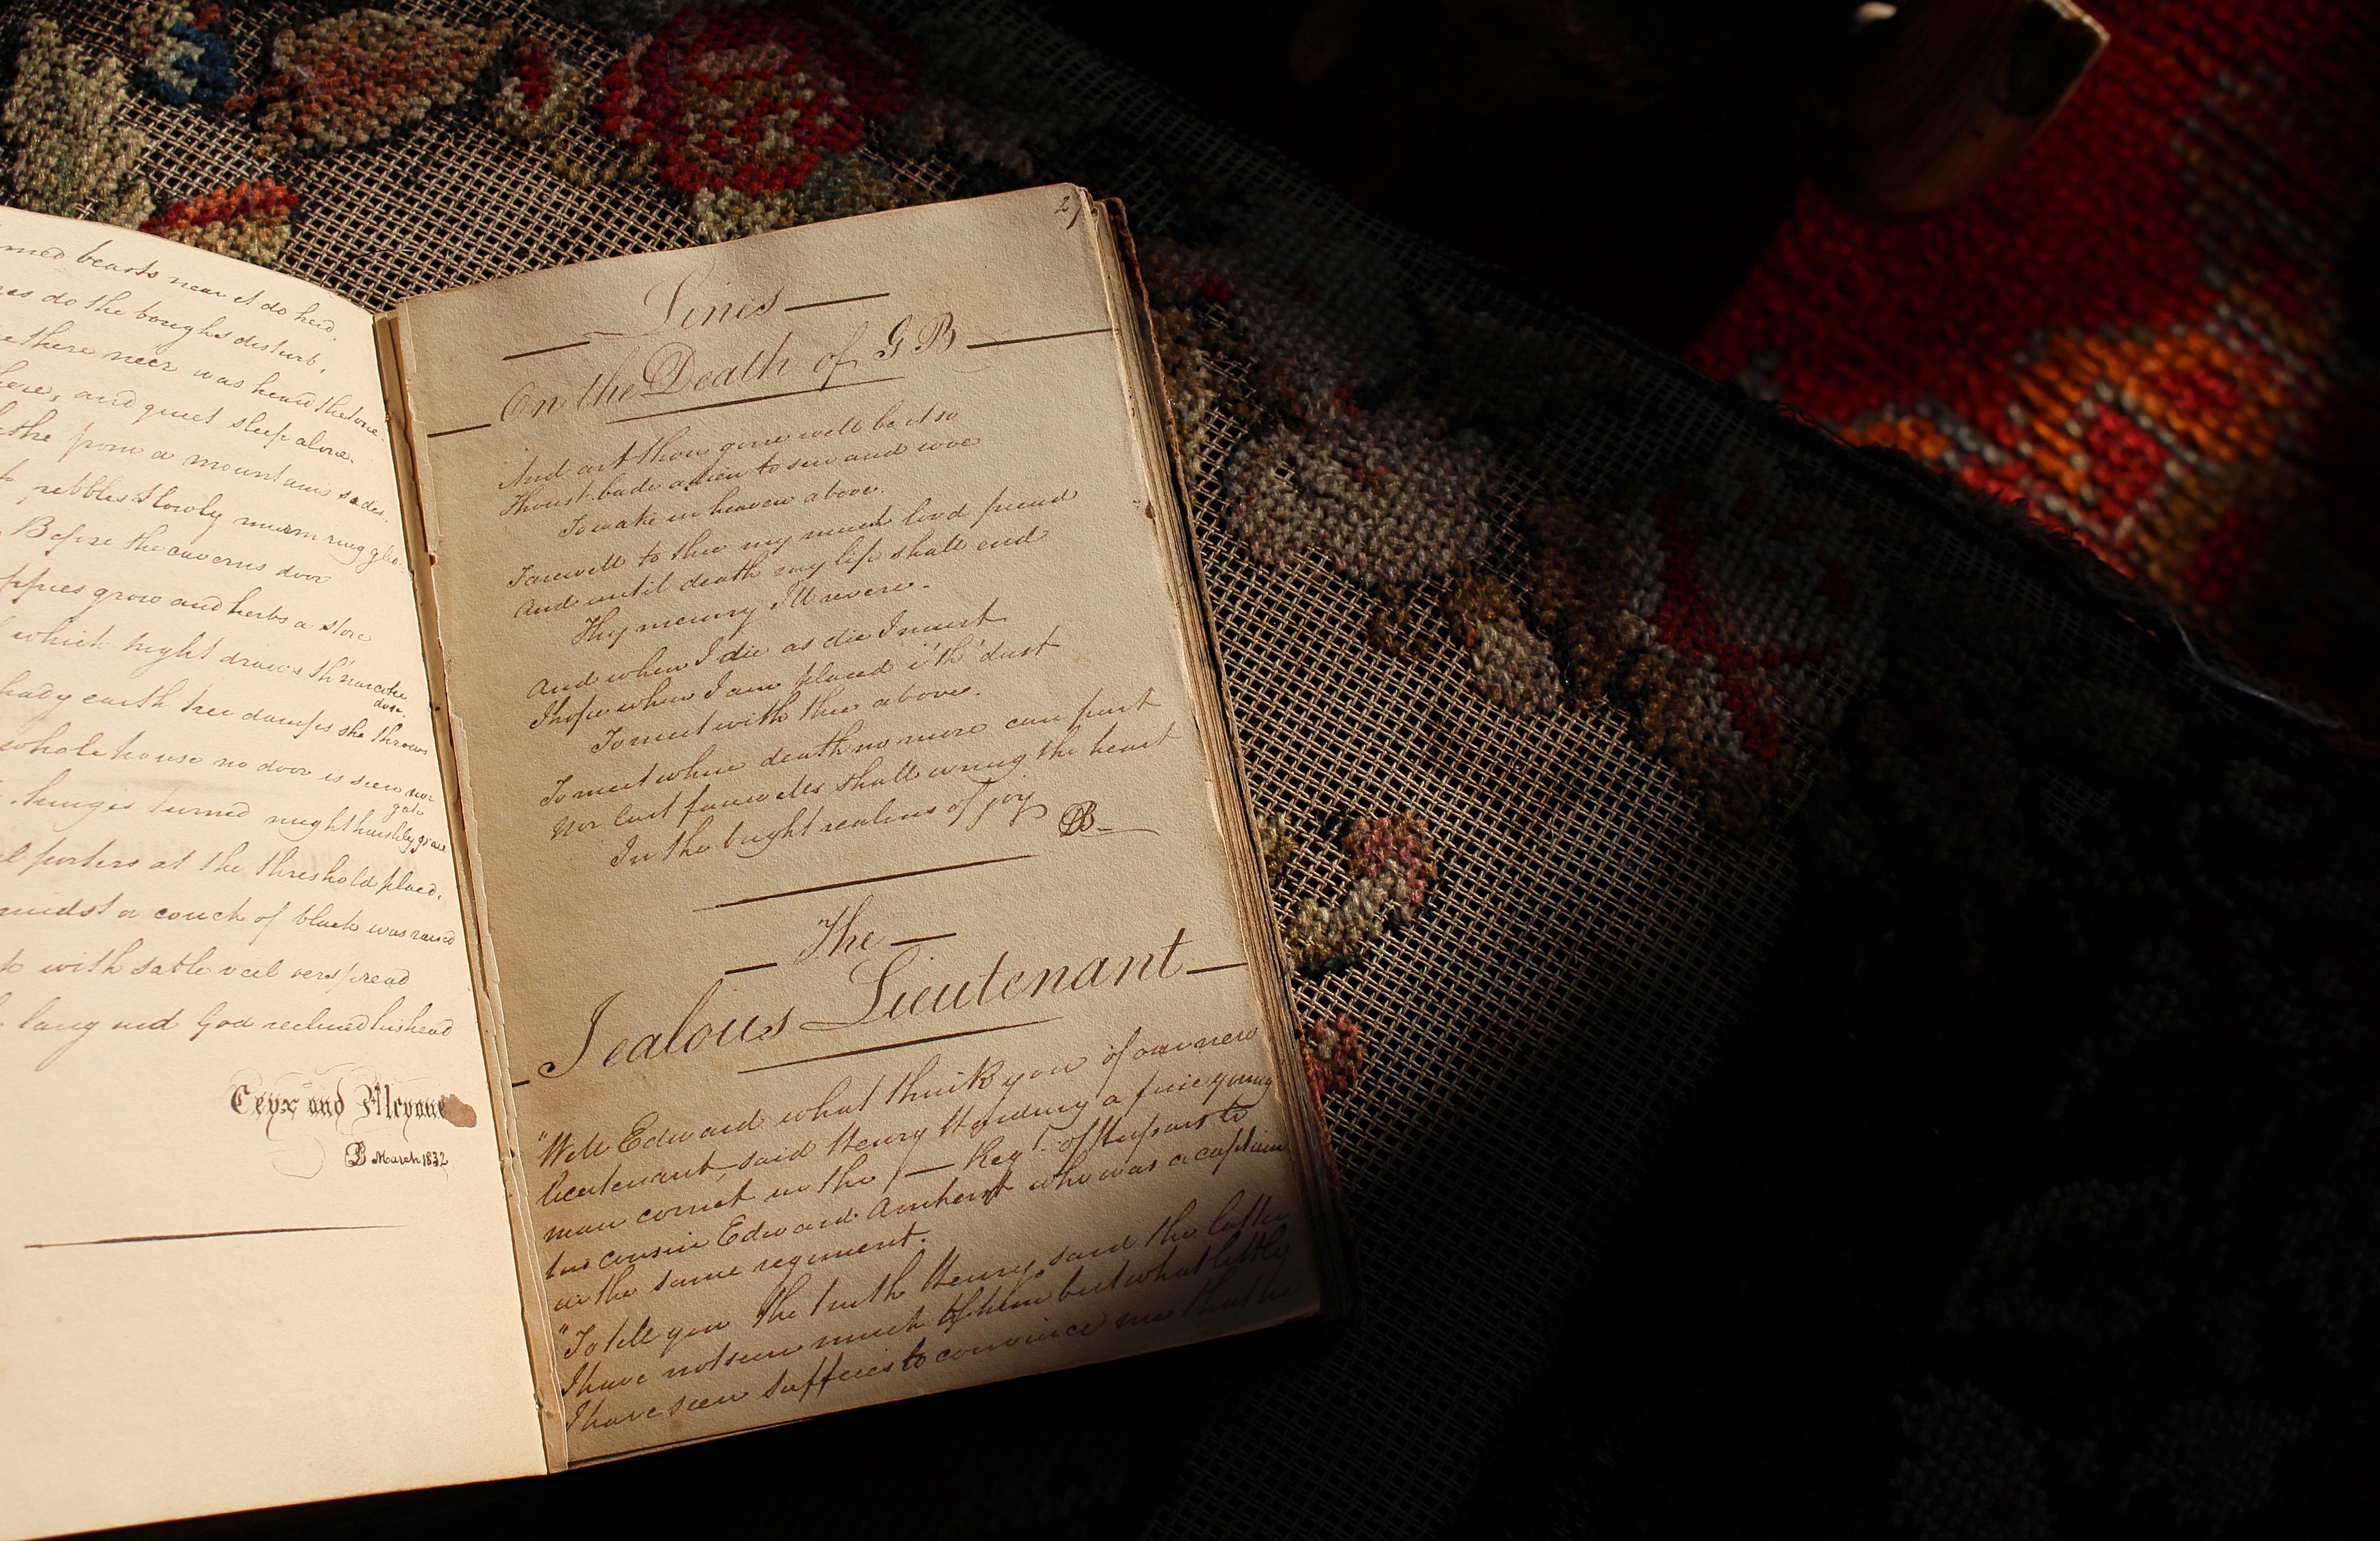 med bearts near it do heed
do the boughs disturb,
there neer was heard the tone.
and quiet sleep alone.
from a mountains sades.
pebbles slowly murm'ring
Before the caverns door
grow and herbs a store
which night draws th' narcotic
dose.
earth her damps she throws
whole house no door is seen nor
gate
hinges turned might harshly grate
porters at the threshold placed.
midst a couch of black was raised
with sable veil oerspread
God reclined his head
Ceyx and Alcyone
March 1832
27
Lines
On the Death of G B
And art thou gone well be it so
Thoust bade adieu to sin and woe
To wake in heaven above.
Farewell to thee my much lovd friend
And until death my life shall end
Thy memry I'll revere.
And when I die as die I must
I hope when I am placed i'th' dust
To meet with thee above.
To meet where death no more can part
Nor last fareweles shall wring the heart
In the bright realms of joy
The
Jealous Lieutenant
"Well Edward what think you of our new
lieutenant, said Henry Harding a fine young
man cornet in the — Regt. of to
his cousin Edward Amherst who was a captain
in the same regiment.
"To tell you the truth Henry, said the latter
I have not seen much of him but what little
I have seen suffices to convince me that he